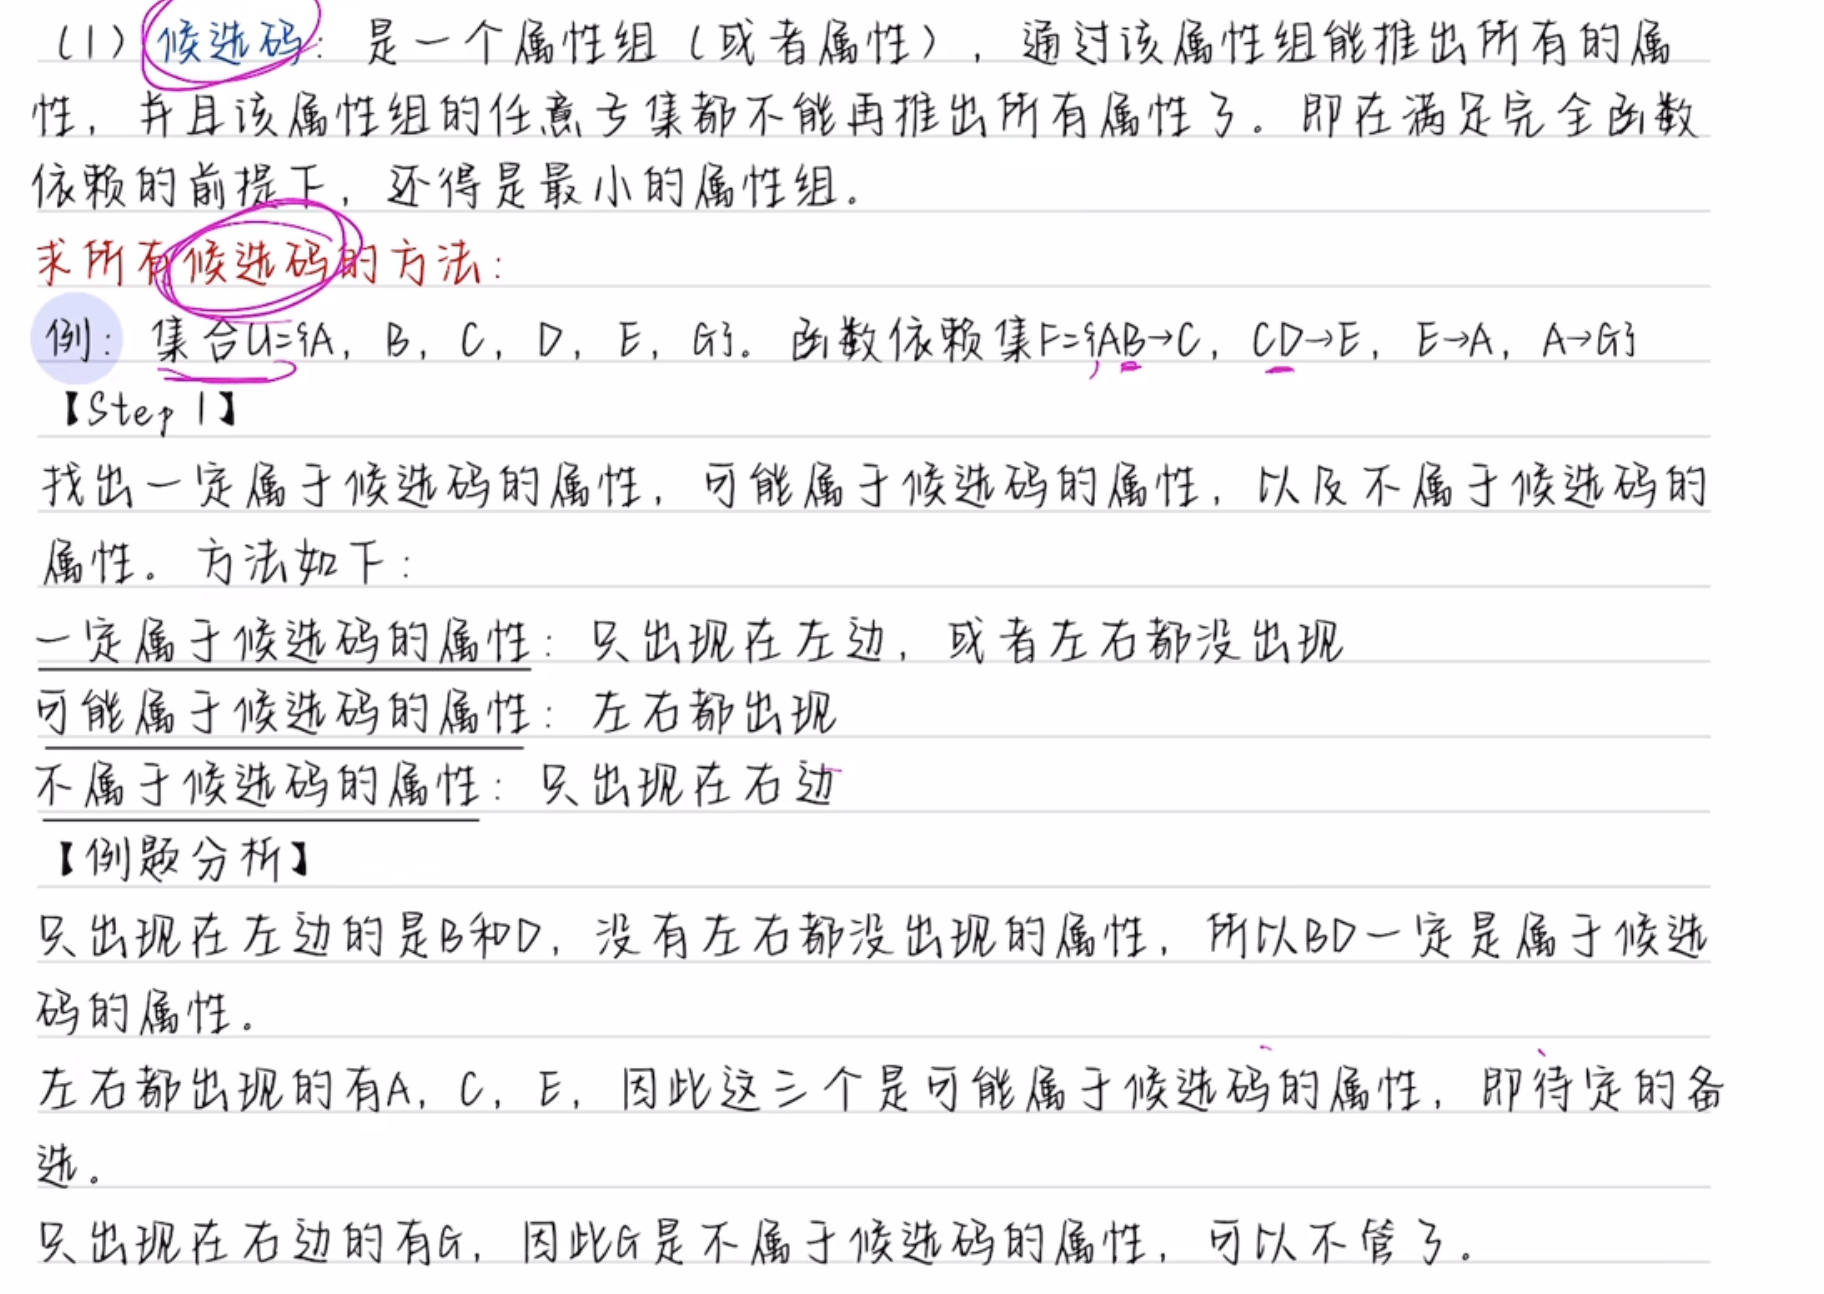 (1)候选码：是一个属性组（或者属性），通过该属性组能推出所有的属
性，并且该属性组的任意子集都不能再推出所有属性了。即在满足完全函数
依赖的前提下，还得是最小的属性组。
求所有候选码的方法：
例：集合U={A，B，C，D，E，G}。函数依赖集F={AB→C，CD→E，E→A，A→G}
【Step 1】
找出一定属于候选码的属性，可能属于候选码的属性，以及不属于候选码的
属性。方法如下：
一定属于候选码的属性：只出现在左边，或者左右都没出现
可能属于候选码的属性：左右都出现
不属于候选码的属性：只出现在右边
【例题分析】
只出现在左边的是B和D，没有左右都没出现的属性，所以BD一定是属于候选
码的属性。
左右都出现的有A，C，E，因此这三个是可能属于候选码的属性，即待定的备
选。
只出现在右边的有G，因此G是不属于候选码的属性，可以不管了。